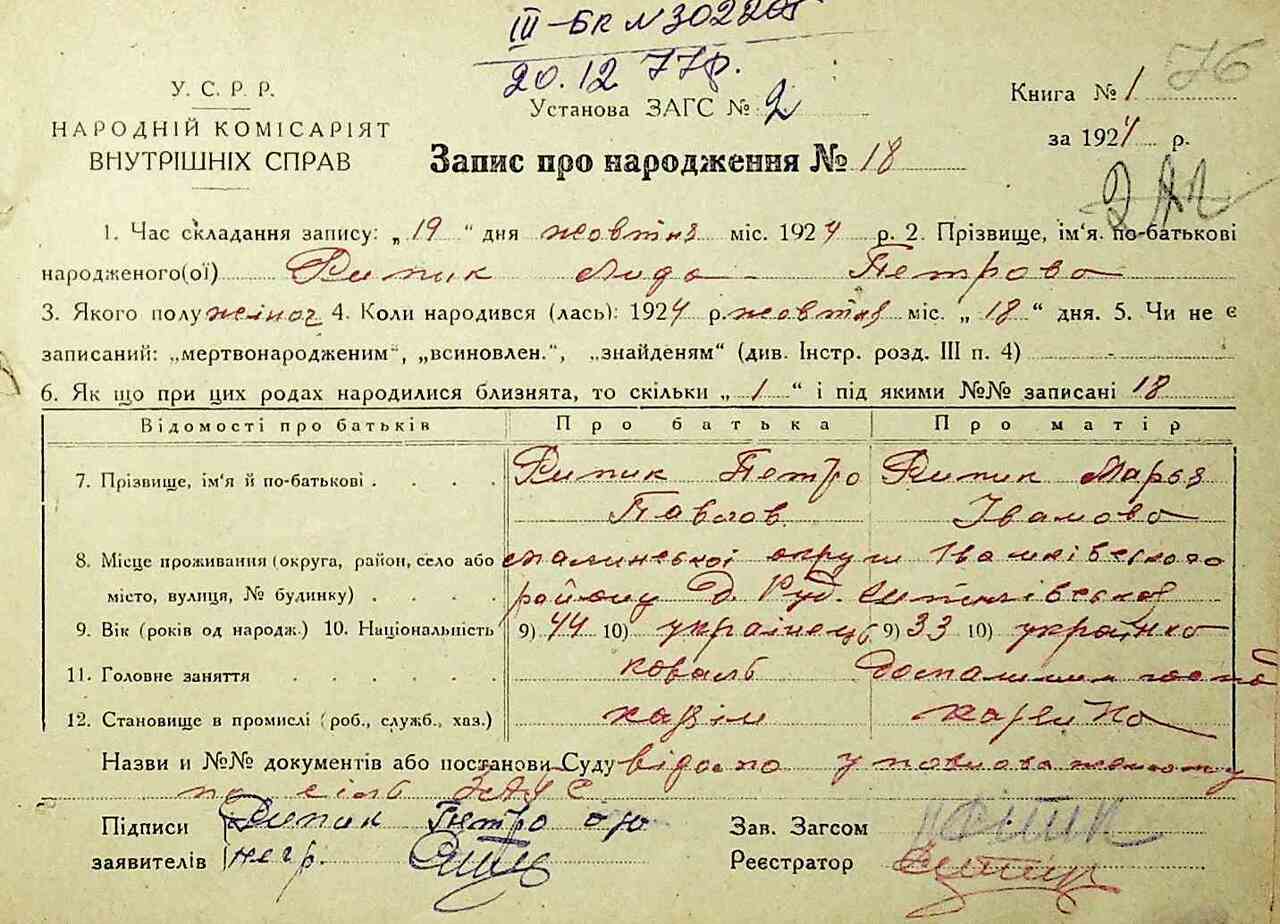 III-БК № 302205
20.12 77р.
76
У. С. Р. Р.
НАРОДНІЙ КОМІСАРІЯТ
ВНУТРІШНІХ СПРАВ
Установа ЗАГС № 2
Книга № 1
за 1924 р.
Запис про народження № 18
1. Час складання запису: „19“ дня жовтня міс. 1924 р. 2. Прізвище, ім'я. по-батькові
народженого(ої) Рипик Лида Петрова
3. Якого полу жіноч 4. Коли народився (лась): 1924 р. жовтня міс. „18“ дня. 5. Чи не є
записаний: „мертвонародженим“, „всиновлен.“, „знайденям“ (див. Інстр. розд. III п. 4) -
6. Як що при цих родах народилися близнята, то скільки „1“ і під якими №№ записані 18
Відомості про батьків Про батька Про матір
7. Прізвище, ім'я й по-батькові . . . . Рипик Петро Рипик Марья
Павлов Іванова
8. Місце проживання (округа, район, село або округи
місто, вулиця, № будинку) . . . . району
9. Вік (років од народж.) 10. Національність 9) 44 10) українець 9) 33 10) українка
11. Головне заняття . . . . . . коваль
12. Становище в промислі (роб., служб., хаз.) хазяін
Назви и №№ документів або постанови Суду
ЗАГС
Підписи Рипик Петро
заявителів негр.
Зав. Загсом
Реєстратор